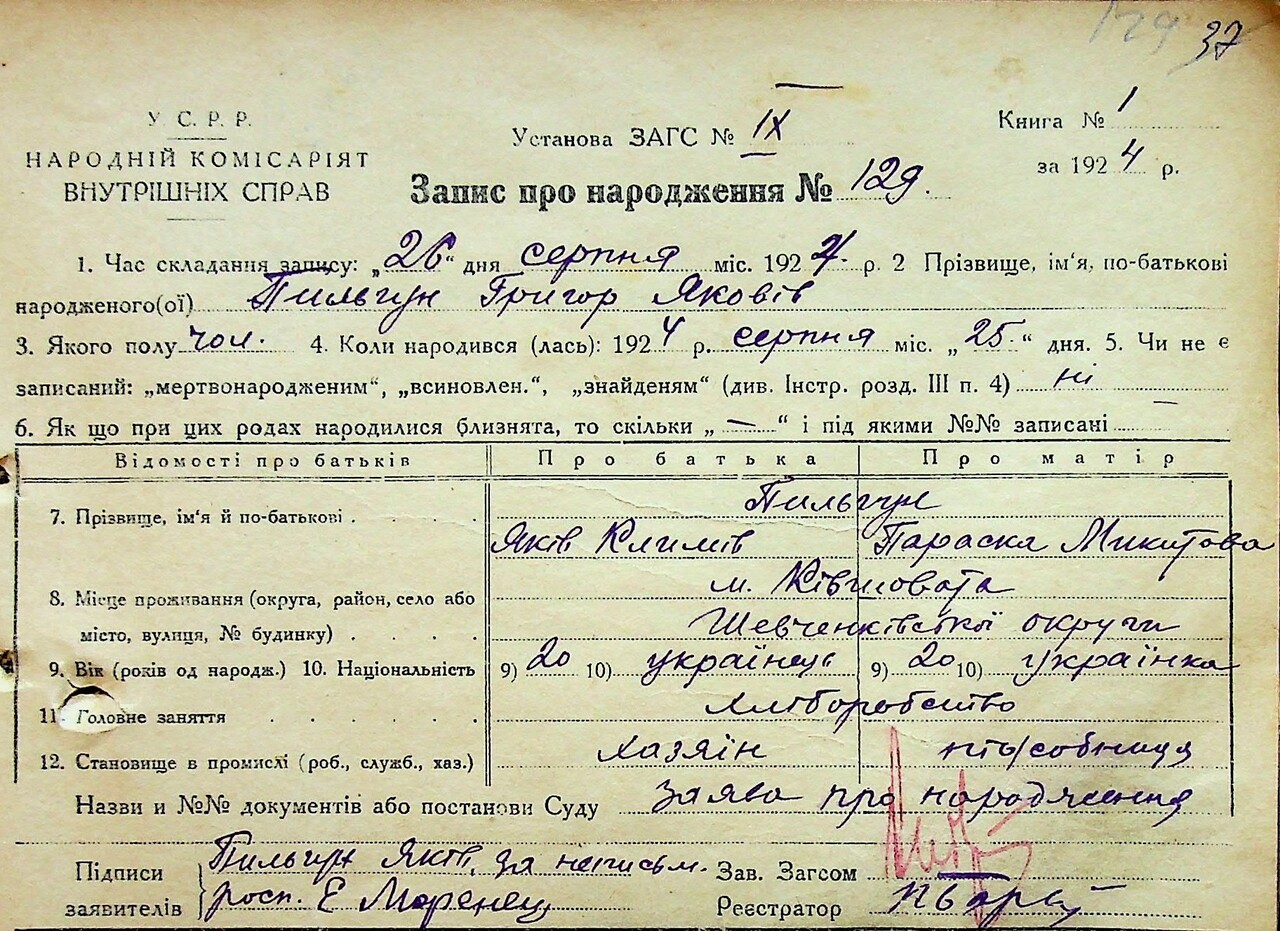 129 37
У. С. Р. Р.
НАРОДНІЙ КОМІСАРІЯТ
ВНУТРІШНІХ СПРАВ
Установа ЗАГС № IX
Книга № 1
за 1924 р.
Запис про народження № 129.
1. Час складання запису: „26“ дня серпня міс. 1924. р. 2 Прізвище, ім‘я, по-батькові
народженого(ої) Пильгун Григор Яковів
3. Якого полу чол. 4. Коли народився (лась): 1924 р. серпня міс. „25.“ дня. 5. Чи не є
записаний: „мертвонародженим“, „всиновлен.“, „знайденям“ (див. Інстр. розд. III п. 4) ні
6. Як що при цих родах народилися близнята, то скільки „—“ і під якими №№ записані —
Відомості про батьків Про батька Про матір
Пильгун
7. Прізвище, ім'я й по-батькові
Яків Климів Параска Микитова
м. Ківшовата
8. Місце проживання (округа, район, село або
місто, вулиця, № будинку)
Шевченківської округи
9. Вік (років од народж.) 10. Національність 9) 20 10) українець 9) 20 10) українка
11. Головне заняття хліборобство
12. Становище в промислі (роб., служб., хаз.) хазяїн
Назви и №№ документів або постанови Суду заява про народження
Підписи
заявителів
Пильгун Яків, за неписьм.
росп. Е Моренец
Зав. Загсом
Реєстратор